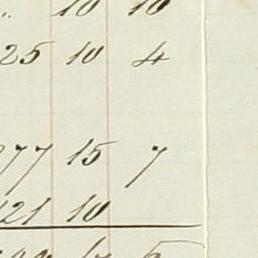 10 10
25 10 4
277 15 7
121 10